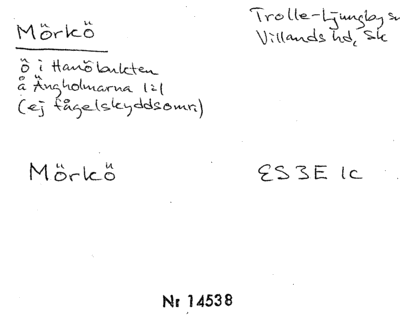 Mörkö
Trolle-Ljungby sn
Villands hd, Sk
ö i Hanöbukten
å Ängholmarna 1:1
(ej fågelskyddsomr.)
Mörkö
ES 3E 1c
Nr 14538